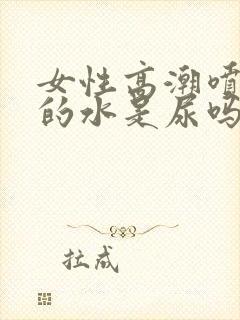 女性高潮喷
的水是尿吗
拉成